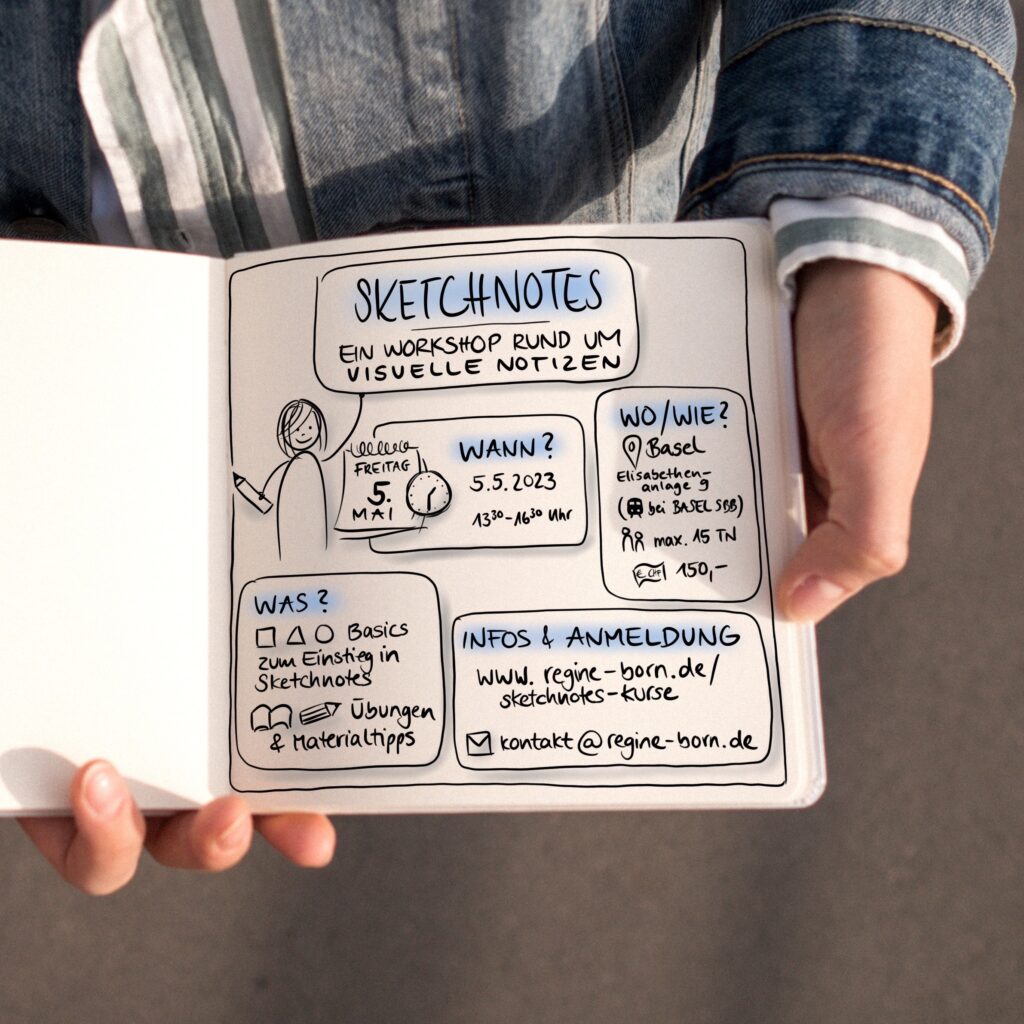 SKETCHNOTES
EIN WORKSHOP RUND UM
VISUELLE NOTIZEN
FREITAG
5.
MAI
WANN?
5.5.2023
13³⁰-16³⁰ Uhr
WO/WIE?
Basel
Elisabethen-
anlage 9
(bei BASEL SBB)
max. 15 TN
€ CHF 150,-
WAS?
Basics
zum Einstieg in
Sketchnotes
Übungen
& Materialtipps
INFOS & ANMELDUNG
www.regine-born.de/
sketchnotes-kurse
kontakt@regine-born.de